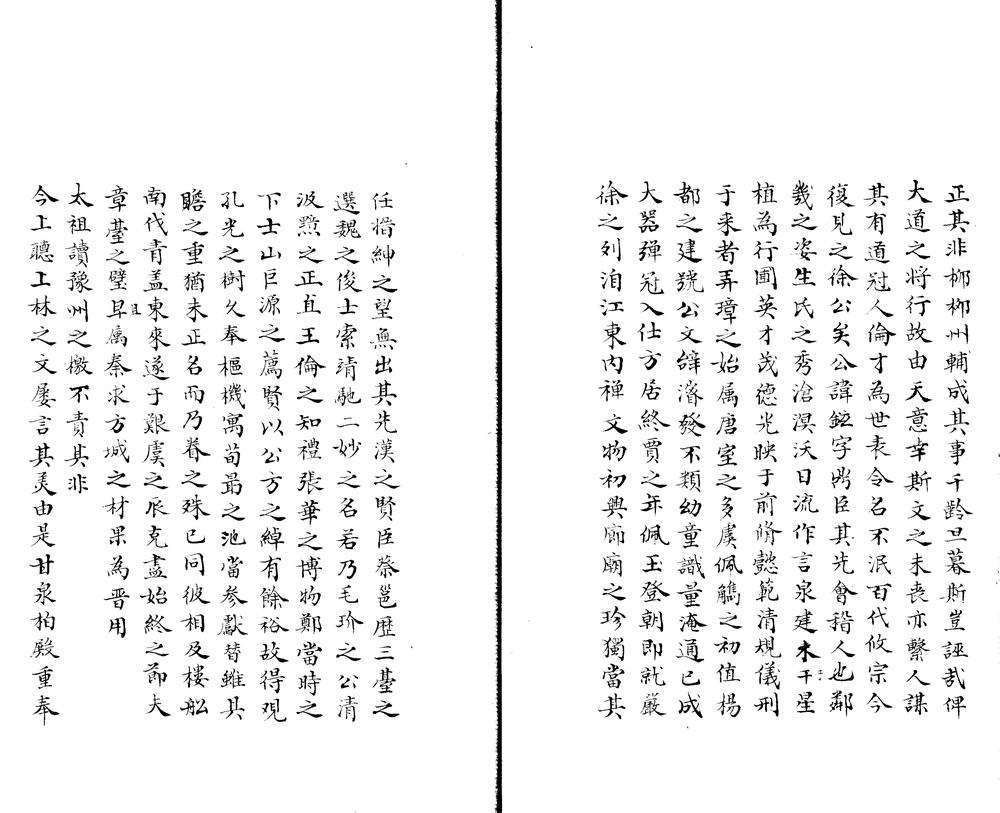 正其非柳柳州輔成其事千齡旦暮斯豈誣哉俾
大道之將行故由天意幸斯文之未喪亦繫人謀
其有道冠人倫才為世表令名不泯百代攸宗今
復見之徐公矣公諱鉉字鼎臣其先會稽人也鄰
幾之姿生民之秀滄溟沃日流作言泉建木干星
植為行圃英才茂德光映于前脩懿範清規儀刑
于来者弄璋之始属唐室之多虞佩觿之初值楊
都之建號公文辭濬發不類幼童識量淹通已成
大器彈冠入仕方居終賈之年佩玉登朝即就嚴
徐之列洎江東内禪文物初興廊廟之珍獨當其
任搢紳之望無出其先漢之賢臣蔡邕歷三臺之
選魏之俊士索靖馳二妙之名若乃毛玠之公清
汲黯之正直王倫之知禮張華之博物鄭當時之
下士山巨源之薦賢以公方之綽有餘裕故得覌
孔光之樹久奉樞機寓荀勗之池當參獻替雖其
瞻之重猶未正名而乃眷之殊已同彼相及樓船
南伐青盖東來遂于艱虞之辰克盡始終之節夫
章臺之璧早属秦求方城之材果為晋用
太祖讀豫州之檄不責其非
今上聽上林之文屡言其美由是甘泉柏殿重奉